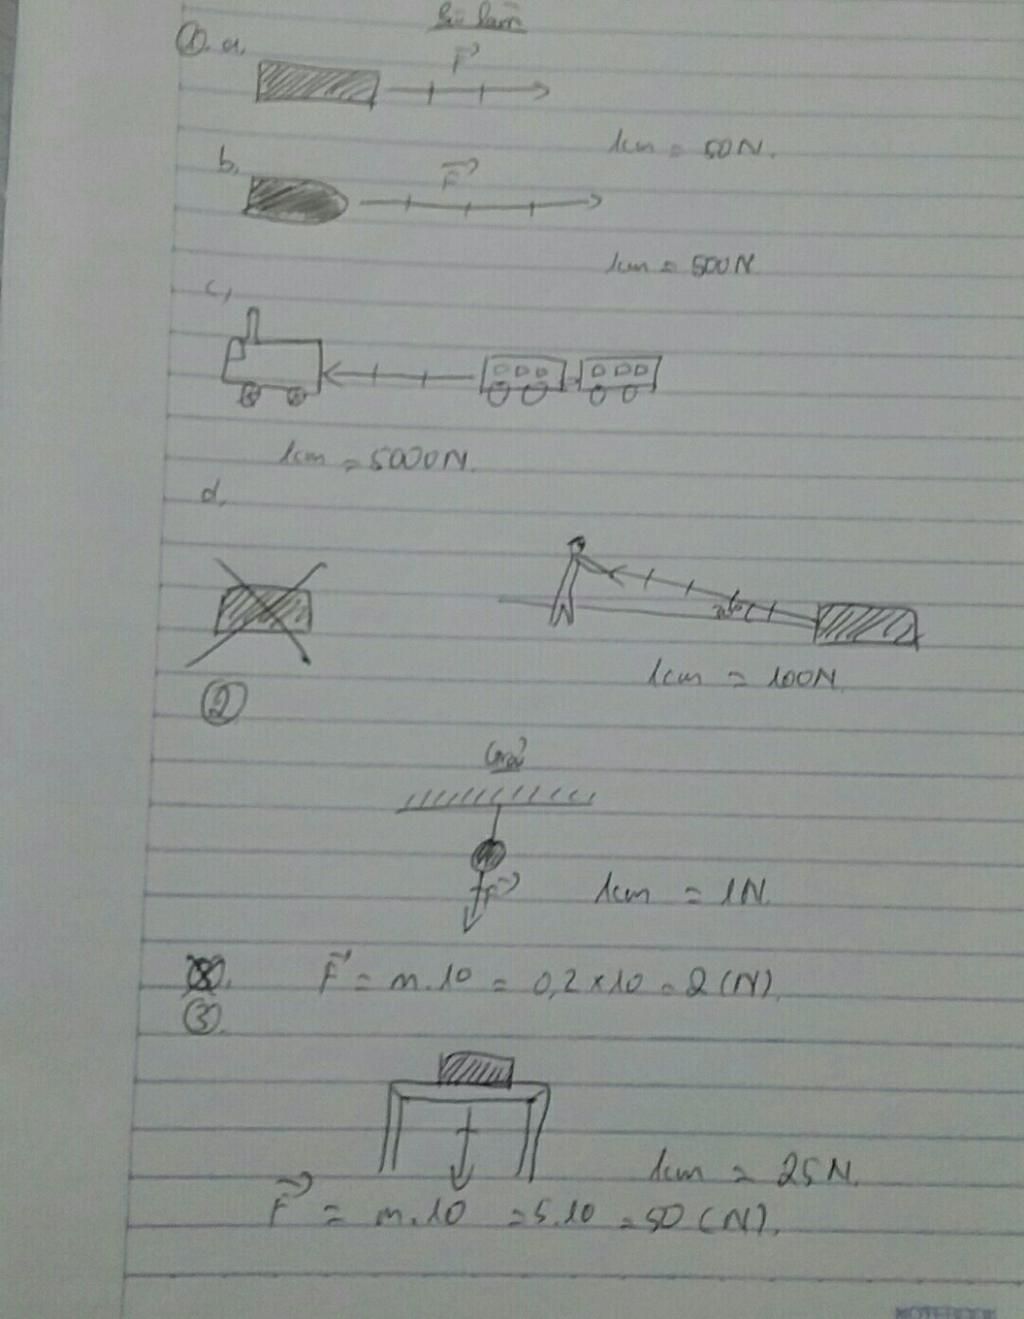 Bài làm
①. a,
F⃗
1cm = 50N.
b,
F⃗
1cm = 500N
c,
1cm = 5000N.
d,
1cm = 100N
②
Giá
F⃗
1cm = 1N.
F⃗ = m.10 = 0,2×10 = 2(N).
③.
1cm = 25N.
F⃗ = m.10 = 5.10 = 50(N).
NOTEBOOK